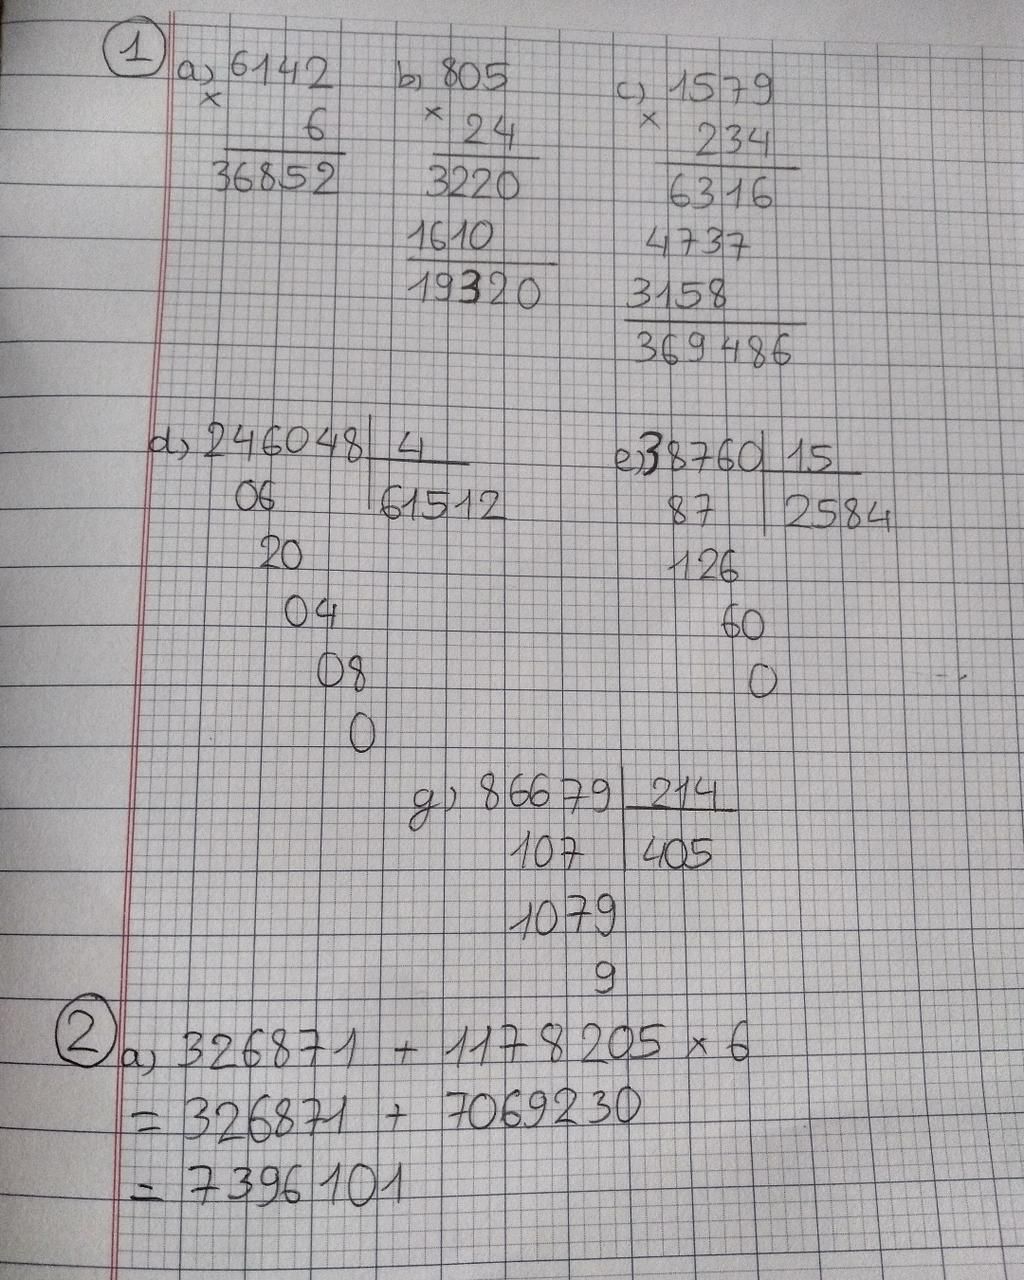 1 a) 6142 b) 805 c) 1579
× 6 × 24 × 234
36852 3220 6316
1610 4737
19320 3158
369486
d) 246048 4 e) 38760 15
06 61512 87 2584
20 126
04 60
08 0
0
g) 86679 214
107 405
1079
9
2 a) 326871 + 1178205 × 6
= 326871 + 7069230
= 7396101